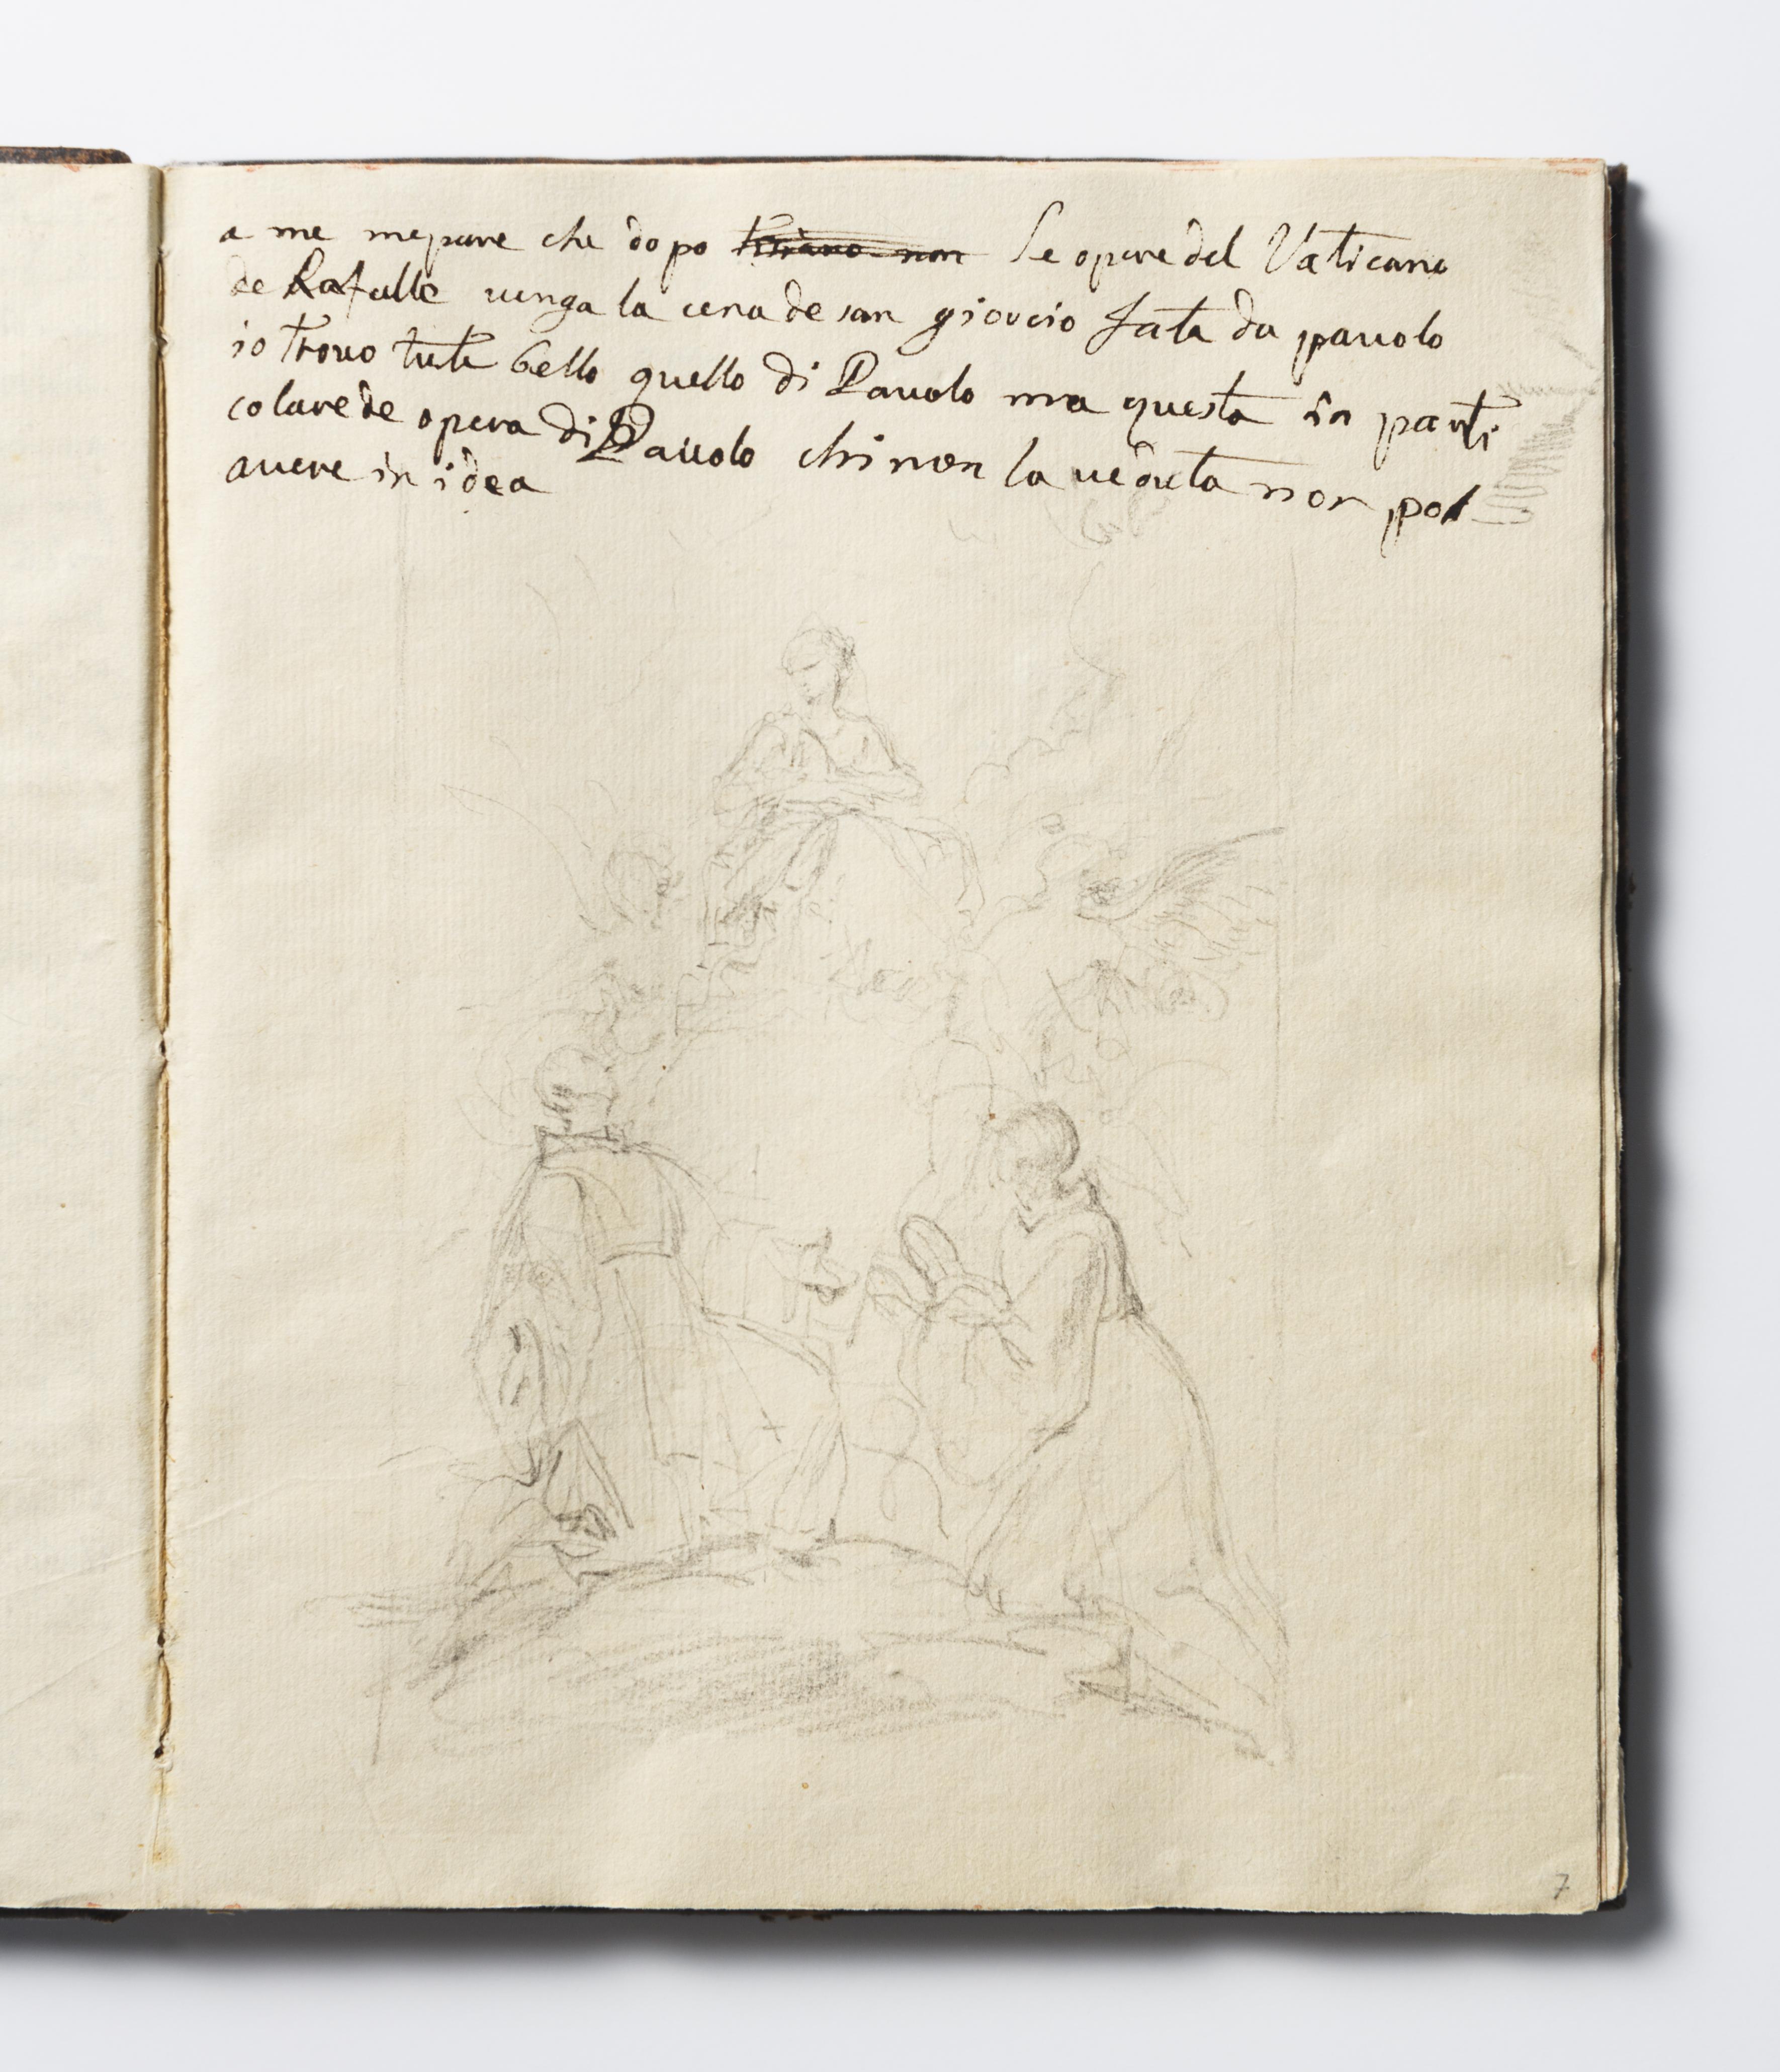 a me mepare che dopo tisiano non Le opere del Vaticano
de Rafalle venga la cena de san giorcio fata da pauolo
io trovo tute bello quello di Pauolo ma questa in parti
colare de opera di Pauolo chi non la veduta non pol
avere in idea
7